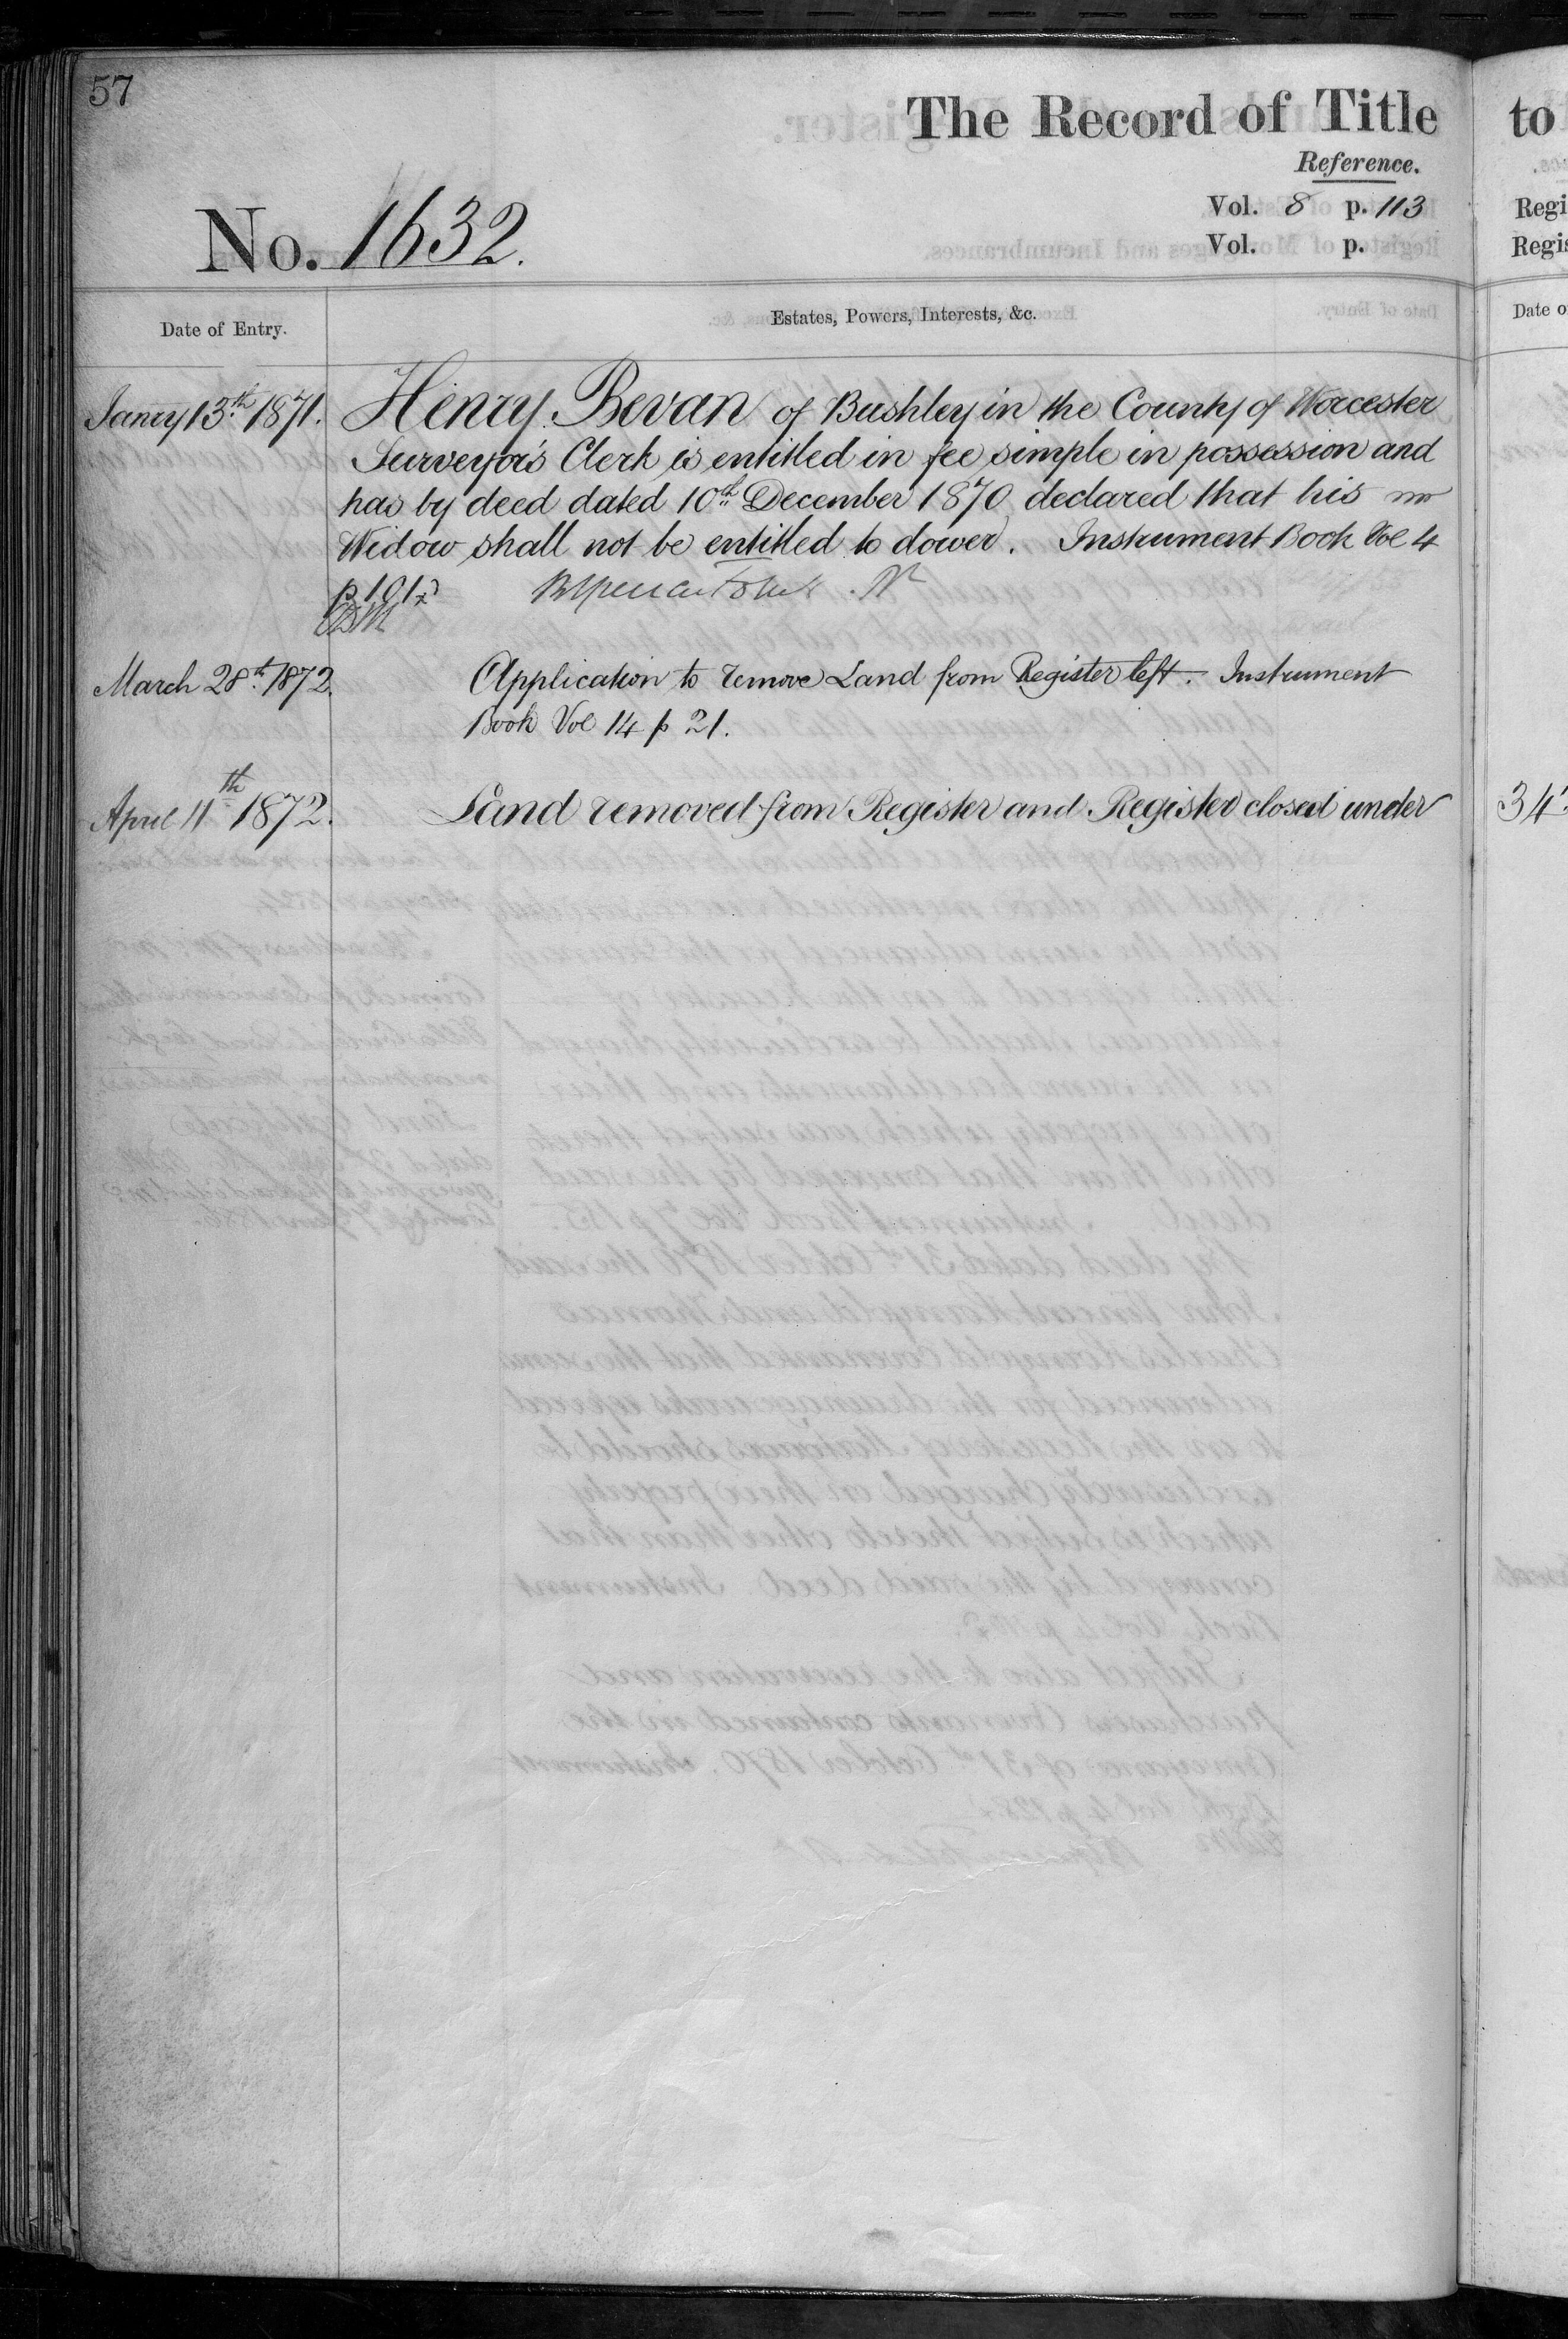 57
The Record of Title
to
Reference.
Vol. 8 p. 113
Regi
No. 1632.
Vol. p.
Regis
Date of Entry.
Estates, Powers, Interests, &c.
Date o
Janry 13th 1871. Henry Bevan of Bushley in the County of Worcester
Surveyor's Clerk is entitled in fee simple in possession and
has by deed dated 10th December 1870 declared that his
Widow shall not be entitled to dower. Instrument Book Vol 4
p 101
March 28th 1872. Application to remove Land from Register left. Instrument
Book Vol 14 p 21.
April 11th 1872. Land removed from Register and Register closed under
34